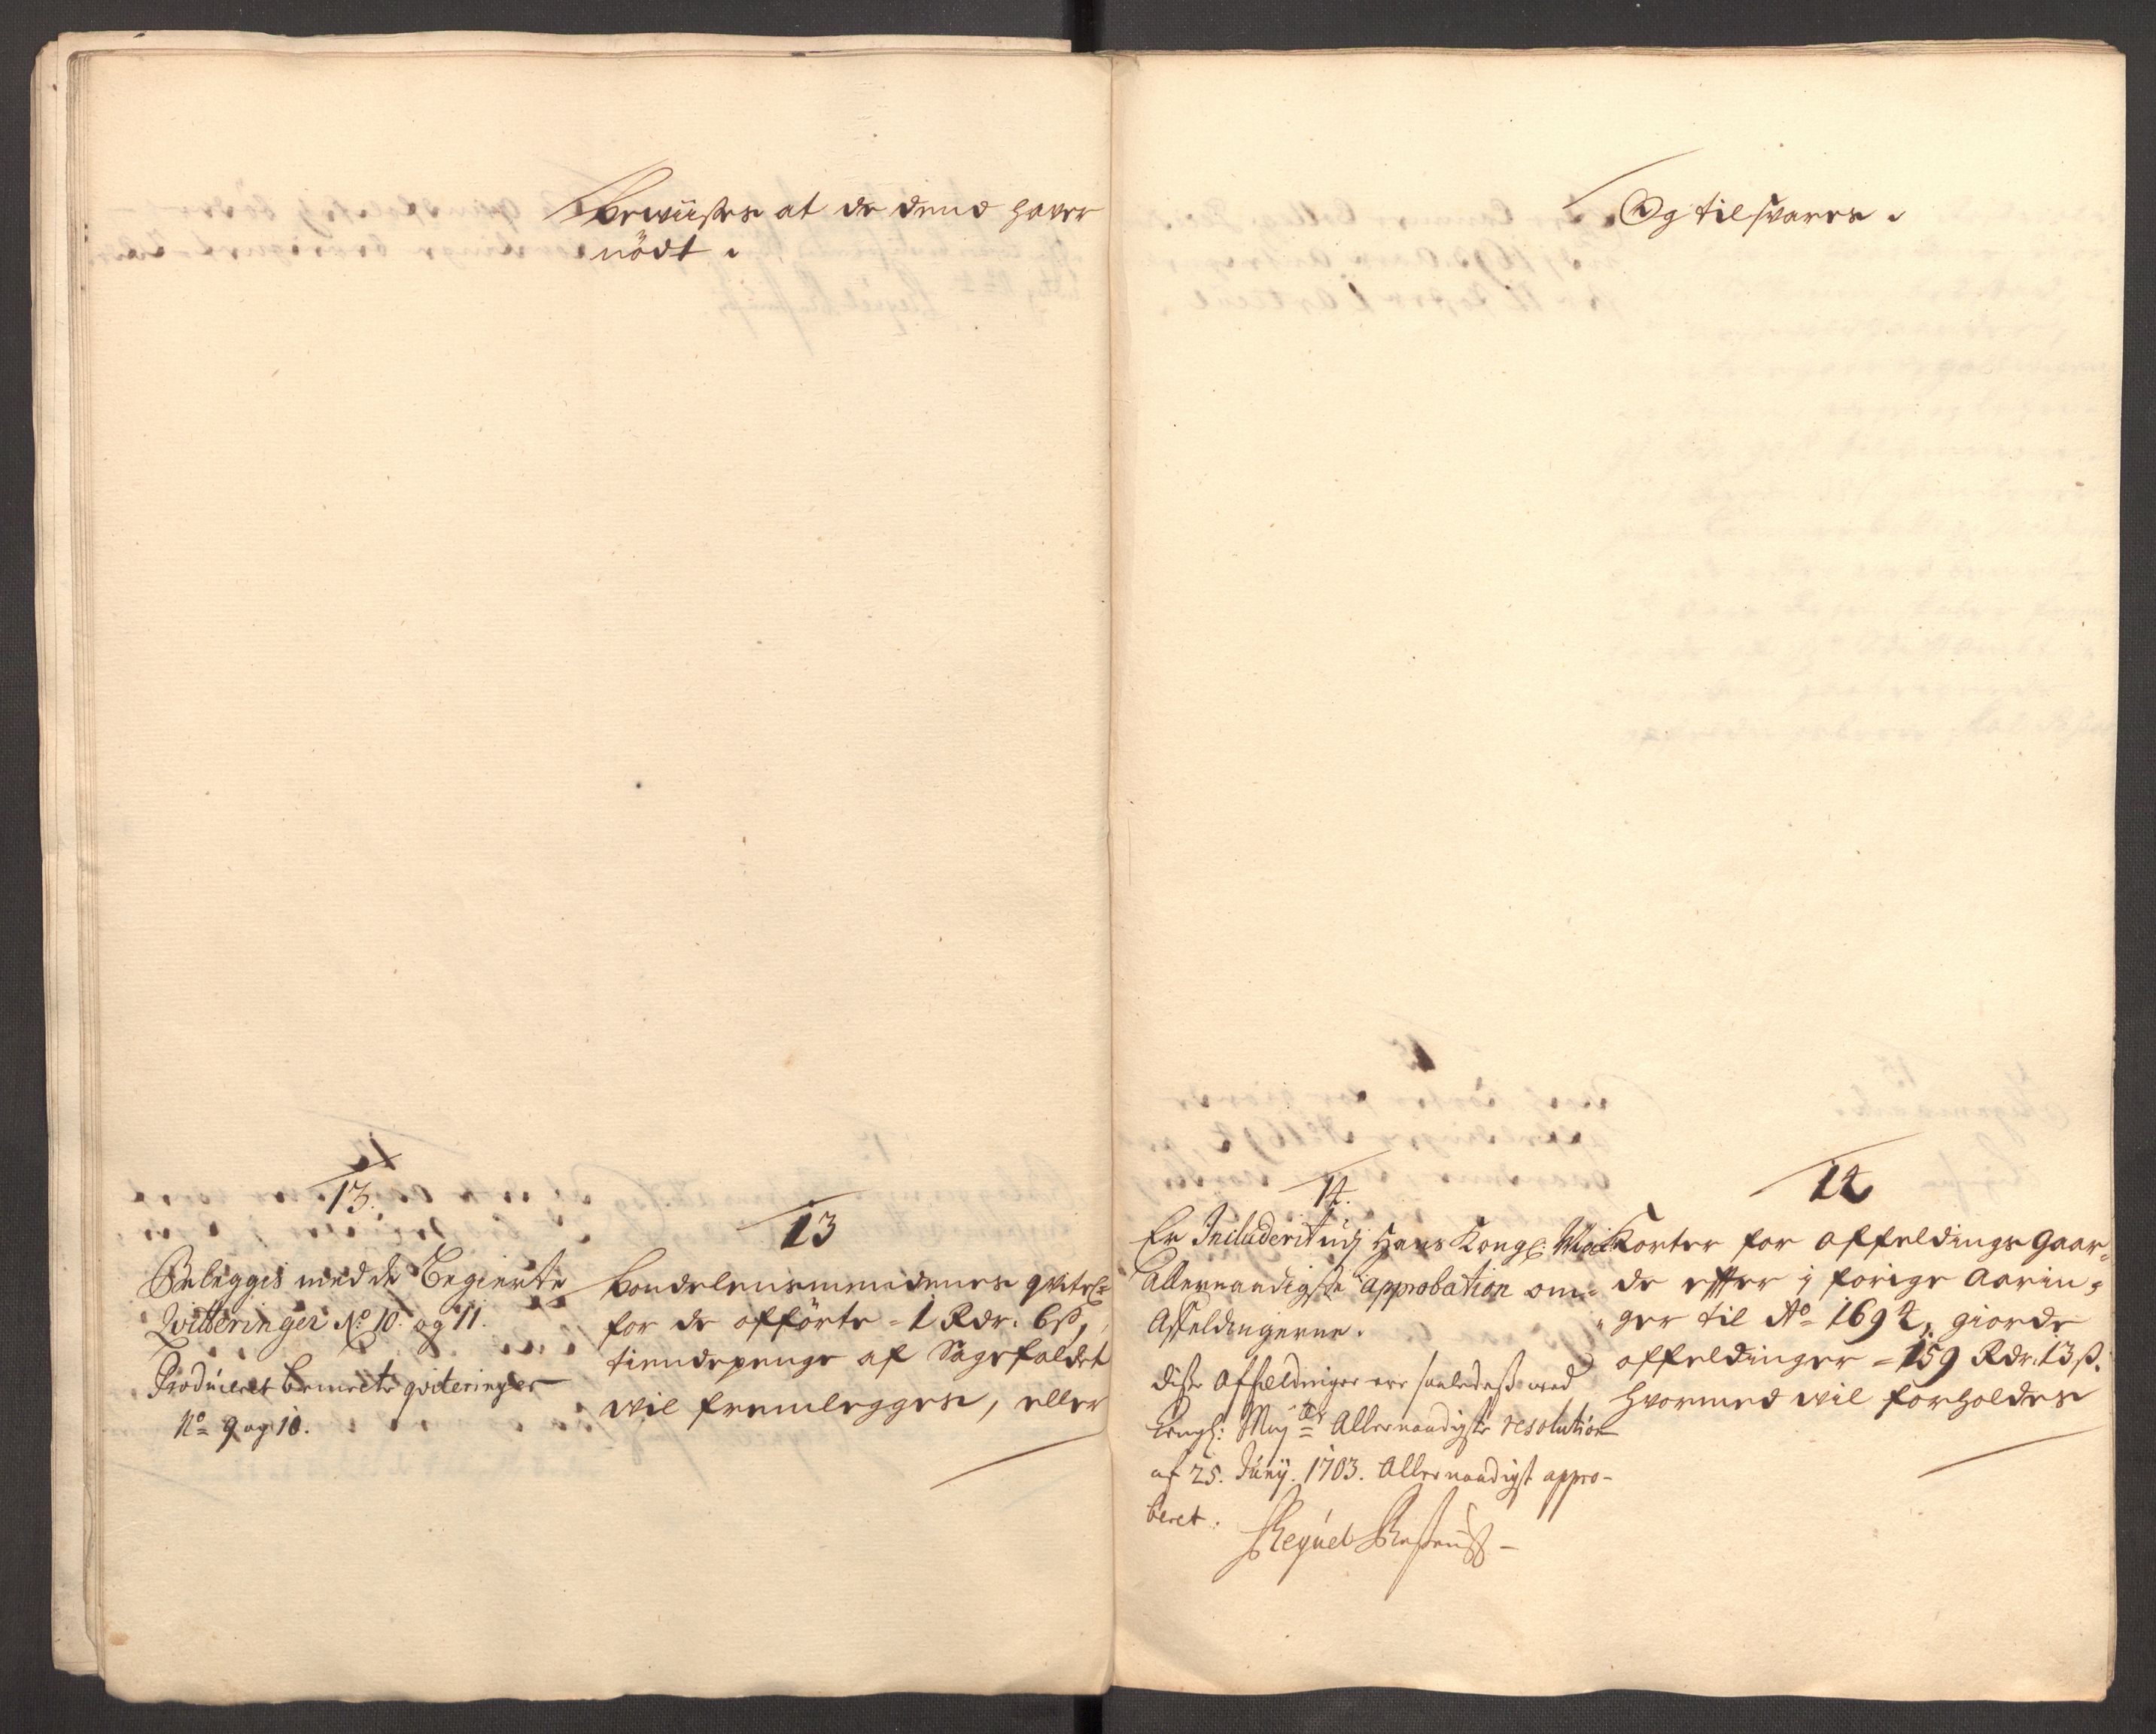 bewiises at de dend haver
nödt.
13.
Belegges med de Begierte
Qvitteringer No 10. og 11.
Produceret bemelte qviteringer
No 9 og 10.
13
for de afförte = 1 Rdr. 6 ß,
tiendepenge af Sagefaldet
wil fremlegges, eller
Og tilsvares.
14.
Er Includerit udj Hans Kongl: May:
Allernaadigste approbation om
Affeldingerne.
disse Affældninger ere saaledeß med
Kongl: May:tts Allernaadigste resolution
af 25. Junij. 1703. Allernaadigst appro-
beret.
14
Korter for affeldings Gaar-
de effter i forige Aarin-
ger til Ao 1692, giorde
affeldinger = 159 Rdr. 13 ß.
hvormed wil forholdes